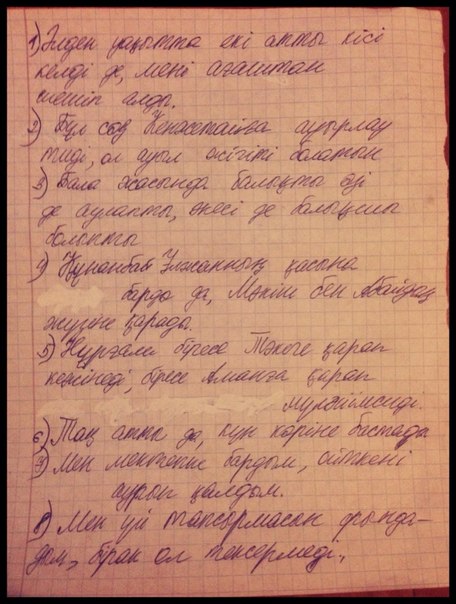 1) Әлден уақытта екі атты кісі
келді де, мені ағаштан
шешіп алды.
2) Бұл сөз Кенжетайға ауырлау
тиді, ол ауыл жігіті болатын
3) Бала жасында балықты өзі
де аулапты, әкесі де балықшы
болыпты
4) Құнанбай Ұлжанның қасына
барды да, Мәкіш бен Абайдың
жүзіне қарады.
5) Нұрғали біресе Тәкеге қарап
кежінеді, біресе Аманға қарап
мүләйімсиді.
6) Таң атты да, күн көріне бастады
7) Мен мектепке бардым, өйткені
ауырып қалдым.
8) Мен үй тапсырмасын орында-
дым, бірақ ол тексермеді.